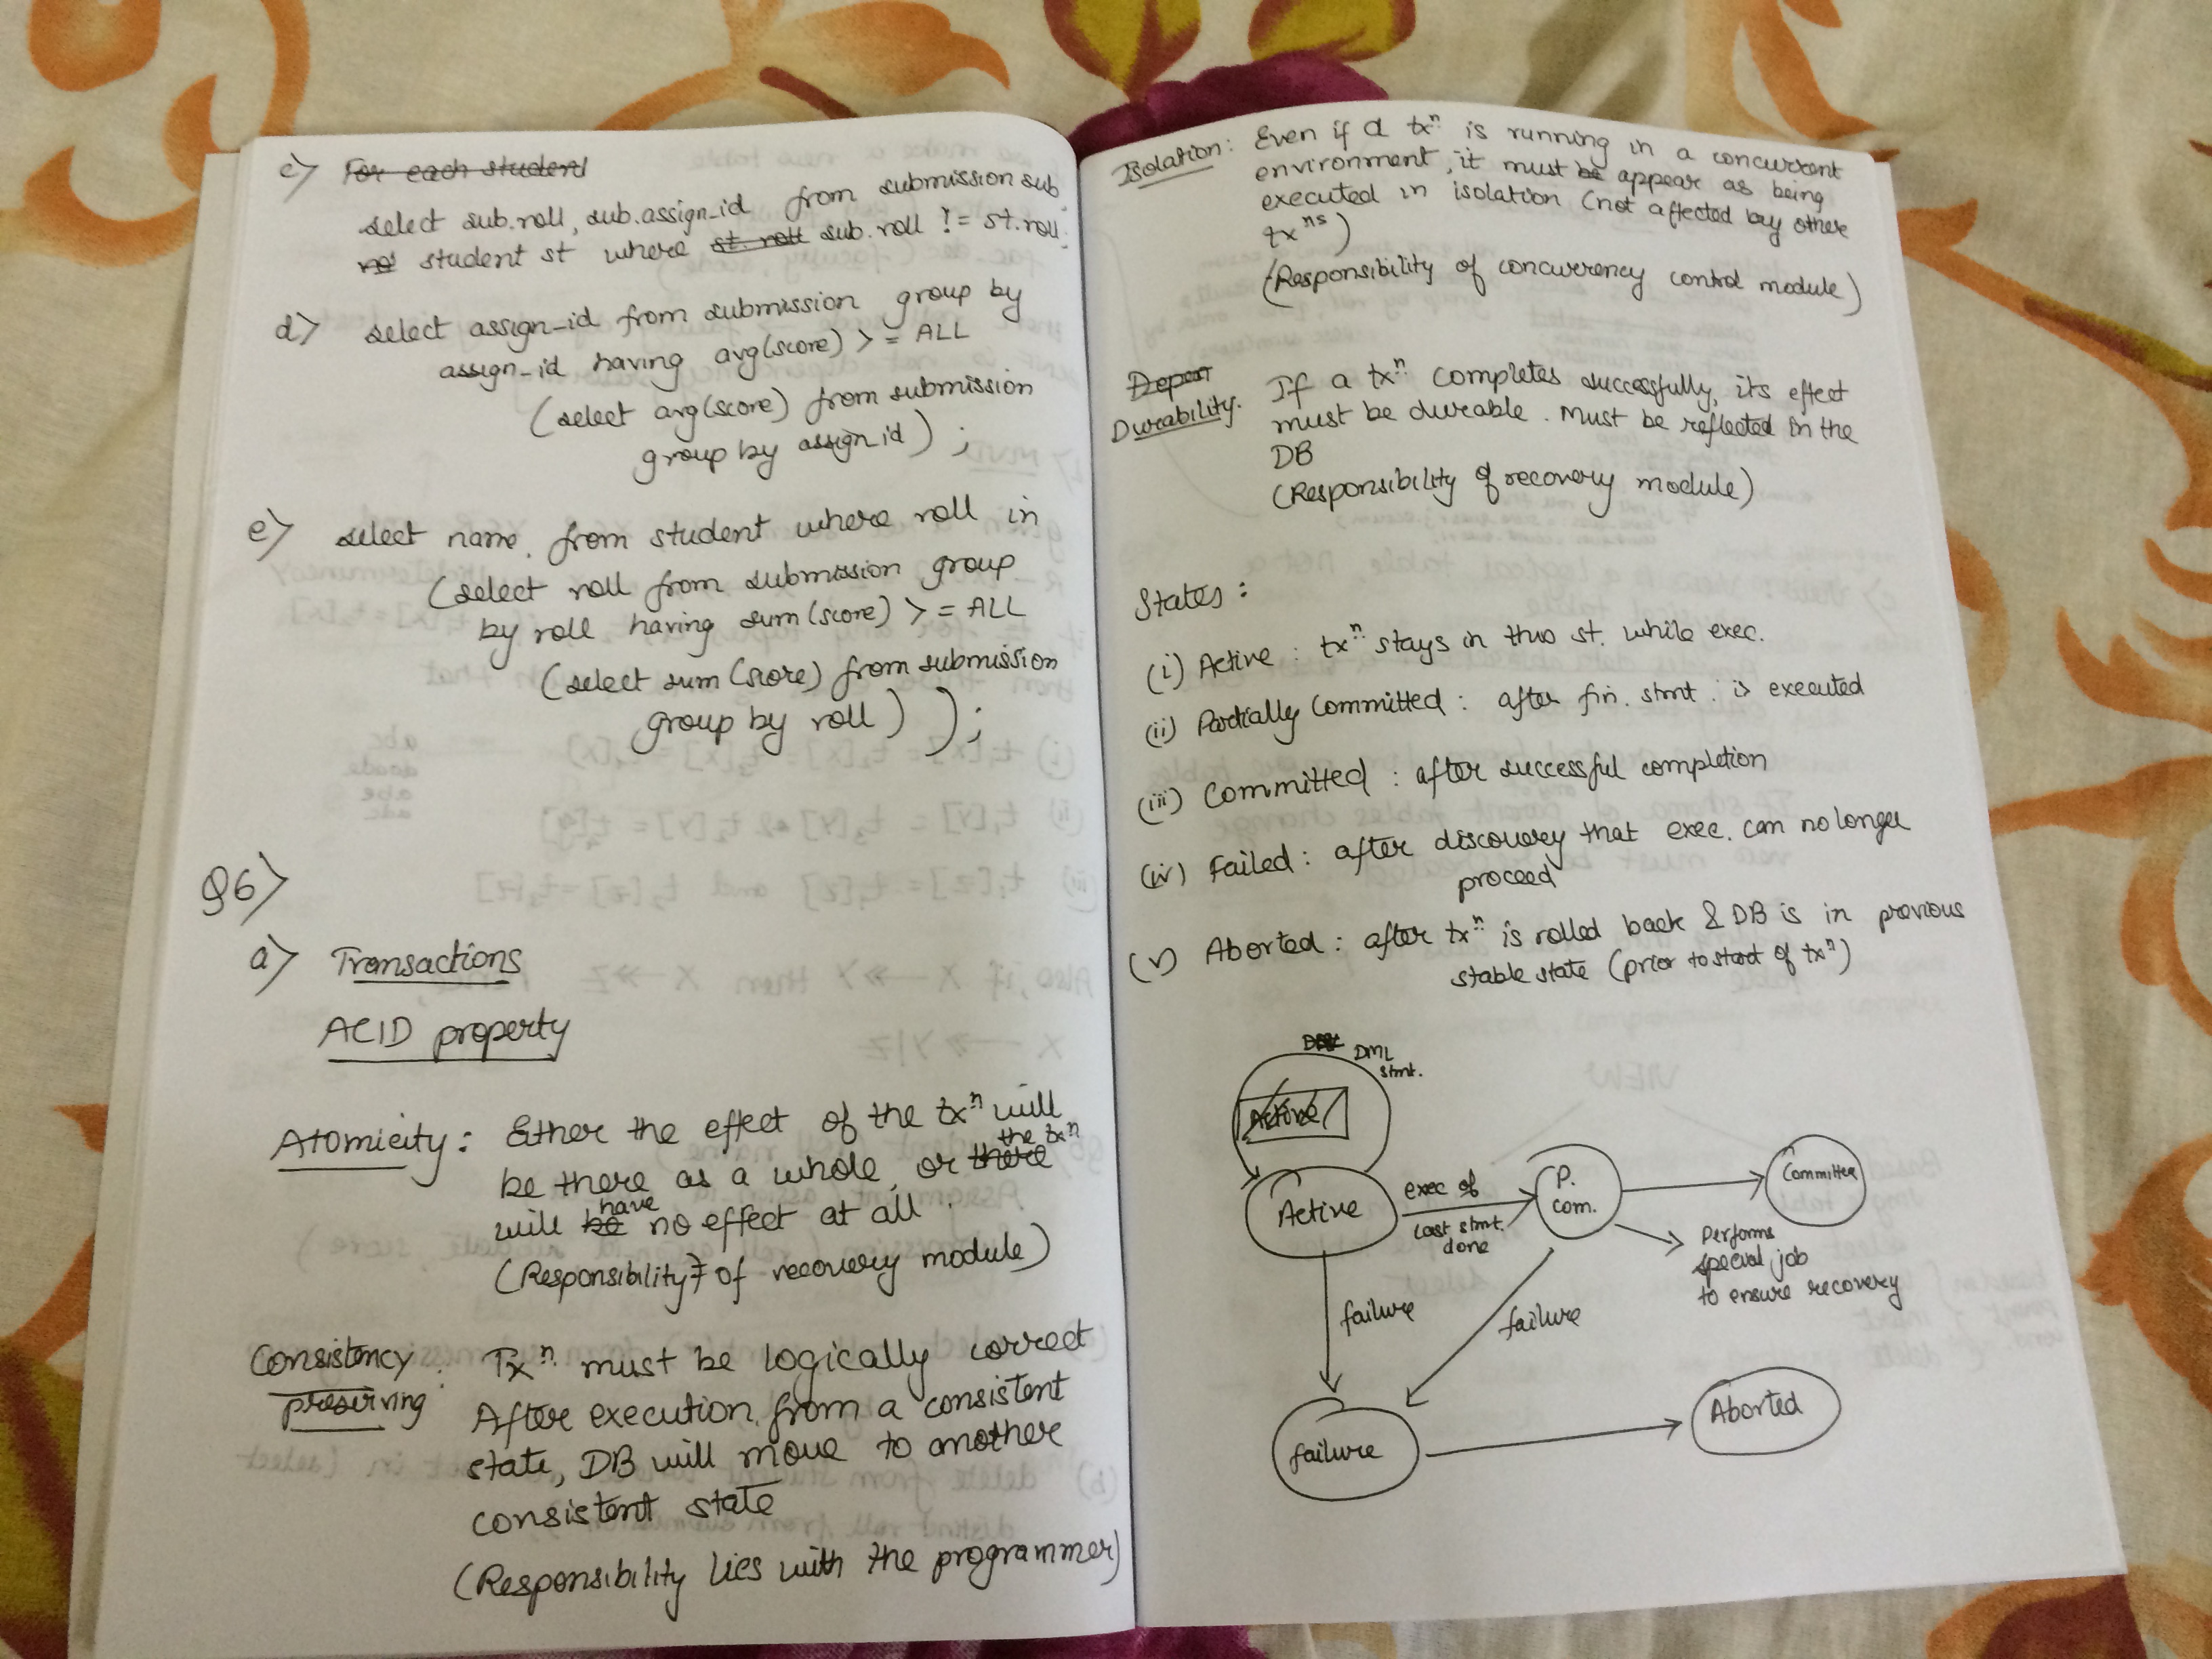 c) For each student
select sub.roll, sub.assign_id from submission sub,
student st where st.roll sub.roll != st.roll;
d) select assign_id from submission group by
assign_id having avg(score) >= ALL
(select avg(score) from submission
group by assign_id);
e) select name from student where roll in
(select roll from submission group
by roll having sum(score) >= ALL
(select sum(score) from submission
group by roll));
Q6)
a) Transactions
ACID property
Atomicity: Either the effect of the txⁿ will
be there as a whole, or there the txⁿ
will have no effect at all.
(Responsibility of recovery module)
Consistency Txⁿ must be logically correct
preserving: After execution from a consistent
state, DB will move to another
consistent state
(Responsibility lies with the programmer)
Isolation: Even if a txⁿ is running in a concurrent
environment, it must be appear as being
executed in isolation (not affected by other
txⁿˢ)
(Responsibility of concurrency control module)
Durability. If a txⁿ completes successfully, its effect
must be durable. Must be reflected in the
DB
(Responsibility of recovery module)
States:
(i) Active: txⁿ stays in this st. while exec.
(ii) Partially Committed: after fin. stmt. is executed
(iii) Committed: after successful completion
(iv) Failed: after discovery that exec. can no longer
proceed
(v) Aborted: after txⁿ is rolled back & DB is in previous
stable state (prior to start of txⁿ)
DML
stmt.
Active
Active
exec of
last stmt.
done
P.
com.
Committed
performs
special job
to ensure recovery
failure
failure
failure
Aborted